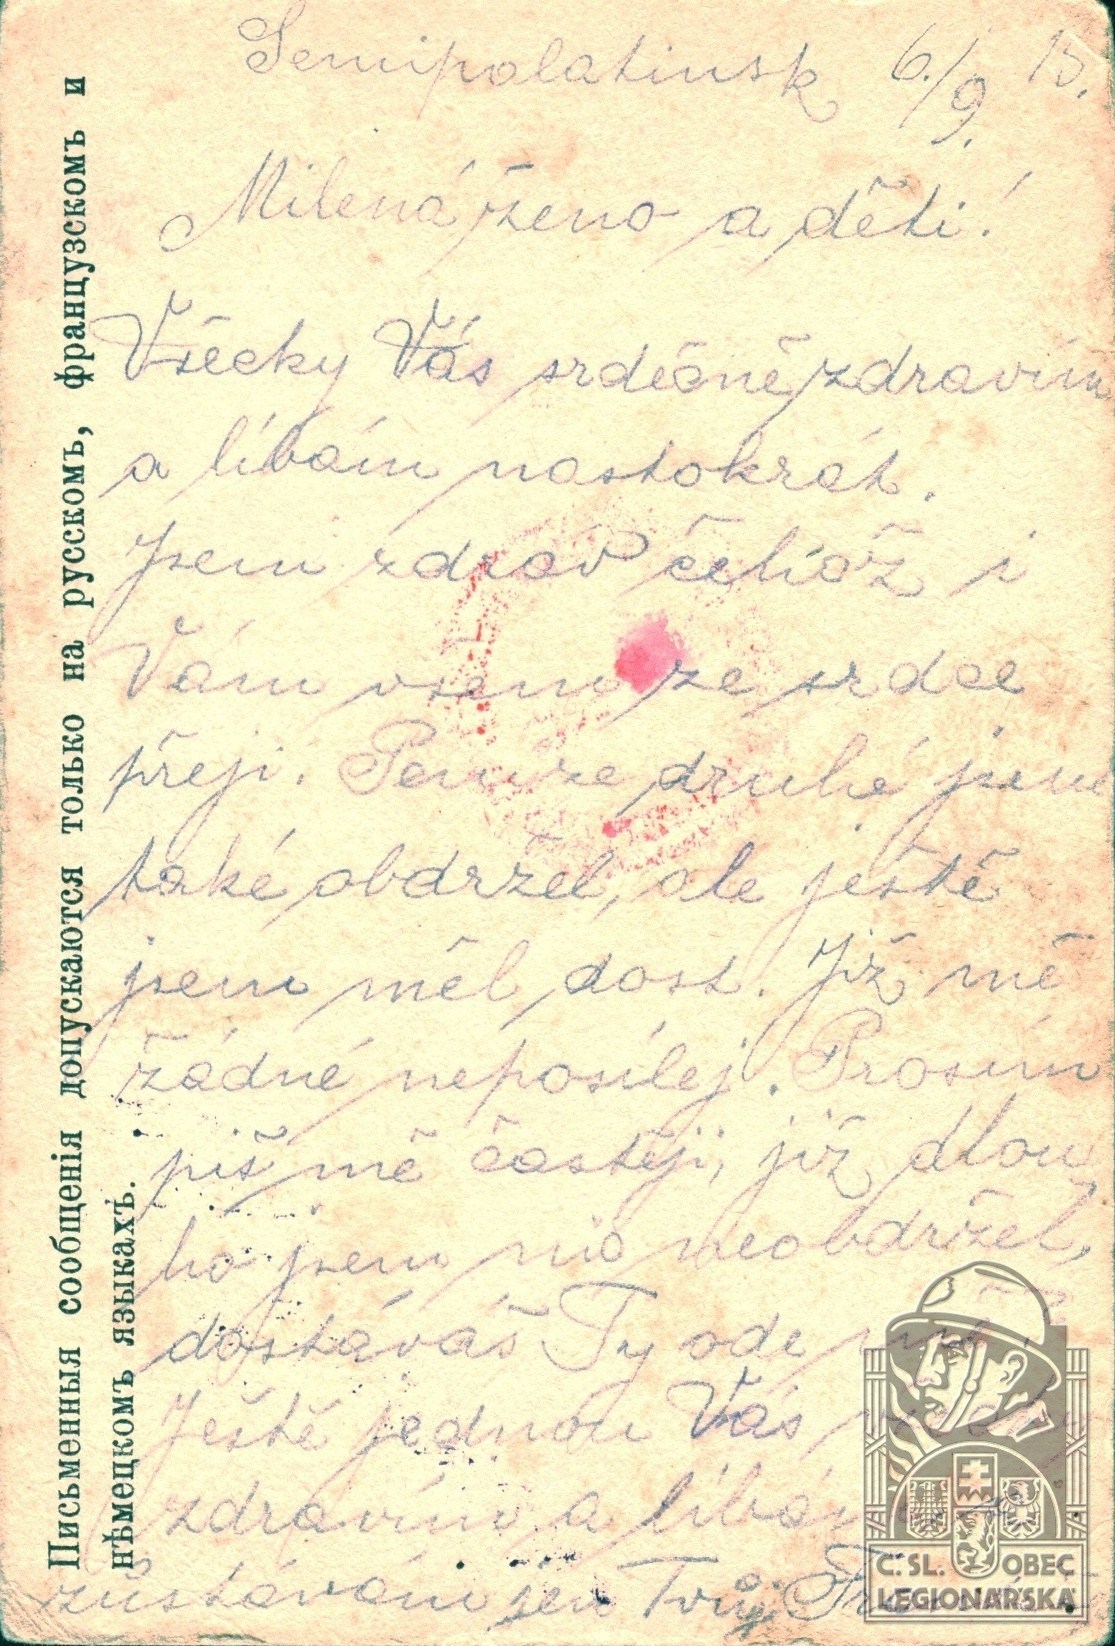 Semipolatinsk 6./9. 15.
Milená ženo a děti!
Všecky Vás srdečně zdravím
a líbám nastokrát.
Jsem zdráv čehož i
Vám všem ze srdce
přeji. Peníze druhé jsem
také obdržel, ale ještě
jsem měl dost. Již mě
žádné neposílej. Prosím
piš mě častěji, již dlou
ho jsem nic neobdržel,
dostáváš Ty ode mě.
Ještě jednou Vás
zdravím a líbám
zůstávám jen Tvůj
Письменныя сообщенія допускаются только на русскомъ, французскомъ и
нѣмецкомъ языкахъ.
Č. SL. OBEC
LEGIONÁŘSKÁ